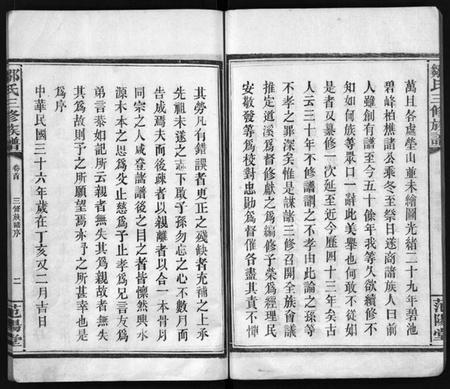 鄒氏三修族譜
范陽堂
萬且各處塋山並未繪圖光緒二十九年碧池
碧峰柏樵諸公乘冬至祭日遂商諸族人曰前
人雖創有譜至今五十餘年我等久欲續修不
知如何族等眾口一辭此美舉也何敢不從如
是者又纂修一次延至近今歷四十三年矣古
人云三十年不修譜謂之不孝由此論之孫等
不孝之罪深矣惟是謀諸三修召開全族會議
推定道溪為督修獻之為編修子榮為經理民
安敬發等為校對忠勛為督各盡其責不憚
其勞凡有錯誤者更正之殘缺者充補之上承
先祖未遂之志下啟子孫勿忘之心不數月而
告成焉夫而後疎者以親離者以合一本骨肉
同宗之人咸登諸譜後之目之者皆懷然興水
源木本之思為父止慈為子止孝為兄言友為
弟言恭如記所云親者無失其為親故者無失
其為故則予之所願望焉亦予之所甚幸也是
為序
中華民國三十六年歲在丁亥又二月吉日
鄒氏三修族譜
卷首
三修族譜序
二
范陽堂